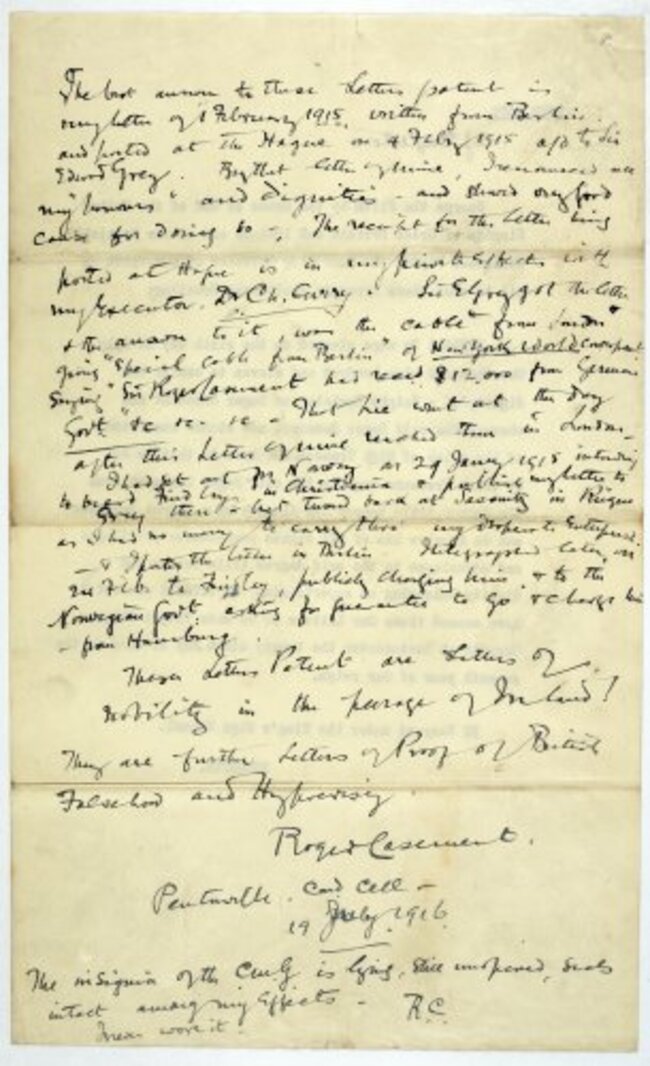 The best answer to these Letters patent is
my letter of 1 February 1915, written from Berlin.
and posted at The Hague on 4 Feby 1915 to Sir
Edward Grey. By that letter of mine, I renounced all
my "honours" and dignities - and showed very good
cause for doing so -. The receipt for the letter being
posted at Hague is in my private effects with
my Executor. Dr Ch. Curry. Sir E Grey got the letter
& the answer to it, was the cable "from London"
giving "special cable from Berlin" of New York World
saying "Sir Roger Casement had recd $12,000 from German
Govt" &c &c - &c - That lie went out the day
after this Letter of mine reached them in London -
I had set out for Norway on 29 Jany 1915 intending
to Findlay in Christiania & publish my letter to
Grey there - but turned back at Sassnitz in Rügen
as I had no many to carry thro' my desperate Enterprise
- & I posted the letter in Berlin I telegraphed later, on
2nd Feb. to Findlay, publicly charging him, & to the
Norwegian Govt. asking for guarantee to go & charge him
- from Hamburg.
These Letters Patent are Letters of
Nobility in the peerage of Ireland!
They are further Letters of Proof of British
Falsehood and Hypocrisy.
Roger Casement.
Pentonville. Cond Cell -
19 July. 1916.
The insignia of the CMG is lying, still unopened, seals
intact among my Effects -
R.C.
I never wore it.